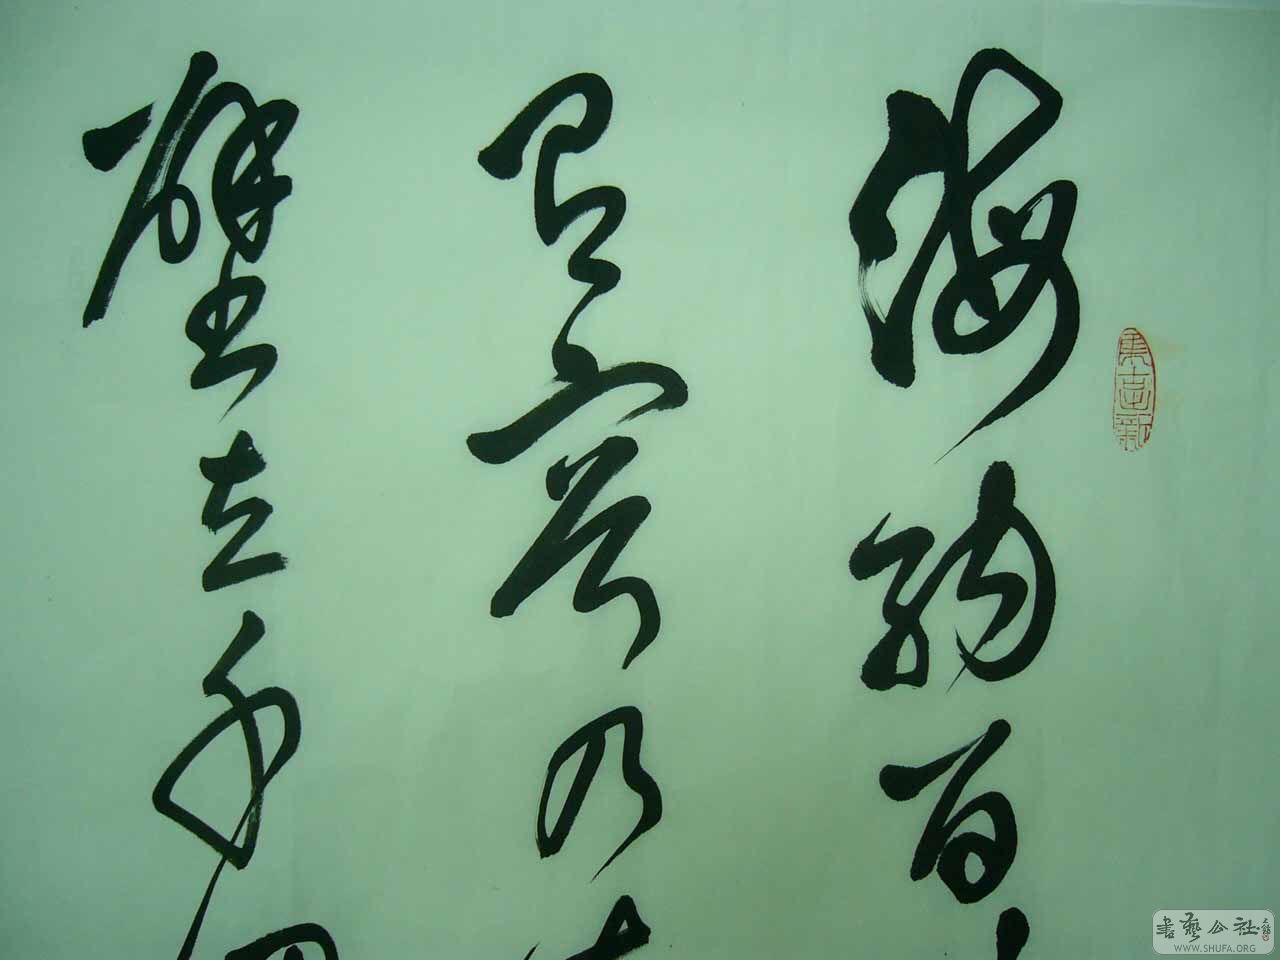 海納百
有容乃
壁立千
書藝公社
WWW.SHUFA.ORG